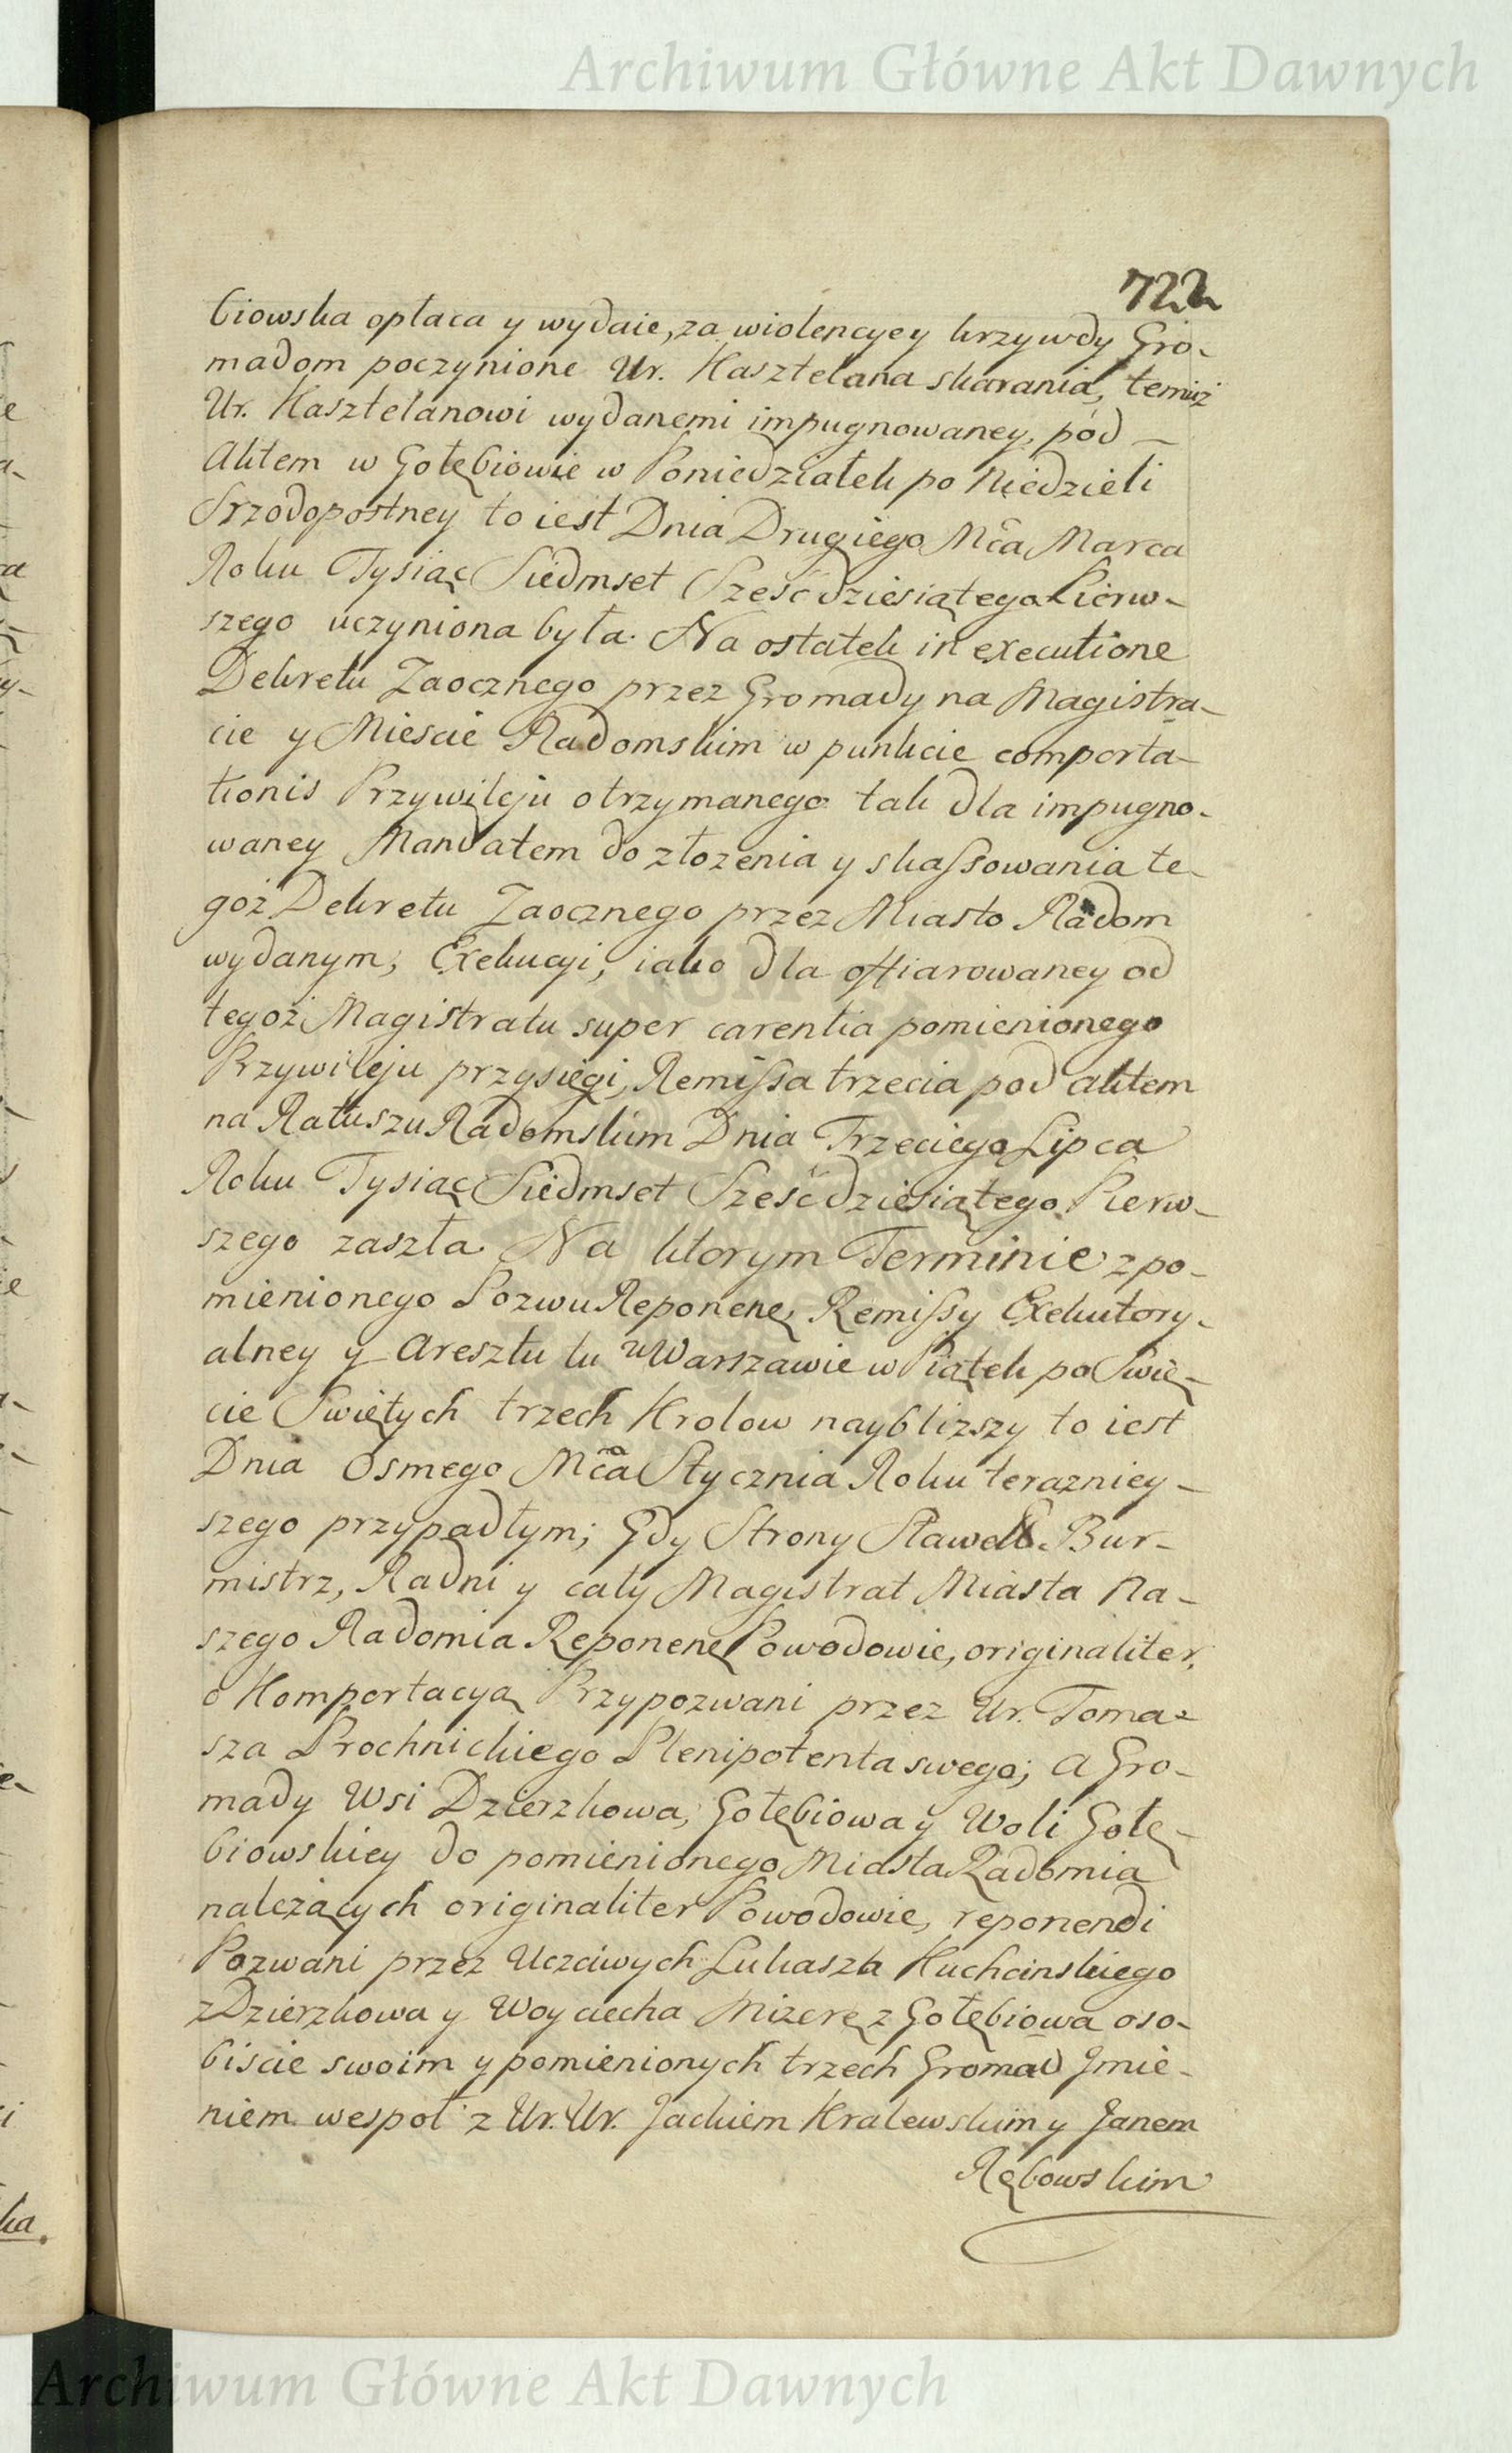 Archiwum Główne Akt Dawnych
722
biowska opłaca y wydaie, za wiolencye y krzywdy Gro-
madom poczynione Ur. Kasztelana skarania, temuż
Ur. Kasztelanowi wydanemi impugnowaney, pod
Aktem w Gołębiowie w Poniedziałek po Niedzieli
Srzodopostney to iest Dnia Drugiego Mca Marca
Roku Tysiąc Siedmset Sześćdziesiątego Pierw-
szego uczyniona była. Na ostatek in executione
Dekretu Zaocznego przez Gromady na Magistra-
cie y Miescie Radomskim w punkcie comporta-
tionis Przywileju otrzymanego tak dla impugno-
waney Mandatem do złozenia y skassowania te-
goż Dekretu Zaocznego przez Miasto Radom
wydanym, Exekucyi, iako dla offiarowaney od
tegoż Magistratu super carentia pomienionego
Przywileju przysięgi, Remissa trzecia pod aktem
na Ratuszu Radomskim Dnia Trzeciego Lipca
Roku Tysiąc Siedmset Sześćdziesiątego Pierw-
szego zaszła. Na ktorym Terminie z po-
mienionego Pozwu Reponenę, Remissy Exekutory-
alney y Aresztu tu w Warszawie w Piątek po Swię-
cie Swiętych trzech Krolow naybliższy to iest
Dnia Osmego Mca Stycznia Roku terazniey-
szego przypadłym; Gdy Strony Sławetni Bur-
mistrz, Radni y cały Magistrat Miasta Na-
szego Radomia Reponenę Powodowie, originaliter,
o Komportacyą Przypozwani przez Ur. Toma-
sza Prochnickiego Plenipotenta swego; A Gro-
mady Wsi Dzierzkowa, Gołębiowa y Woli Gołę-
biowskiey do pomienionego Miasta Radomia
należących originaliter Powodowie, reponendi
Pozwani przez Uczciwych Lukasza Kuchcinskiego
z Dzierzkowa y Woyciecha Mizerę z Gołębiowa oso-
biscie swoim y pomienionych trzech Gromad Jmie-
niem wespoł z Ur. Ur. Jackiem Kralewskim y Janem
Rębowskim
Archiwum Główne Akt Dawnych